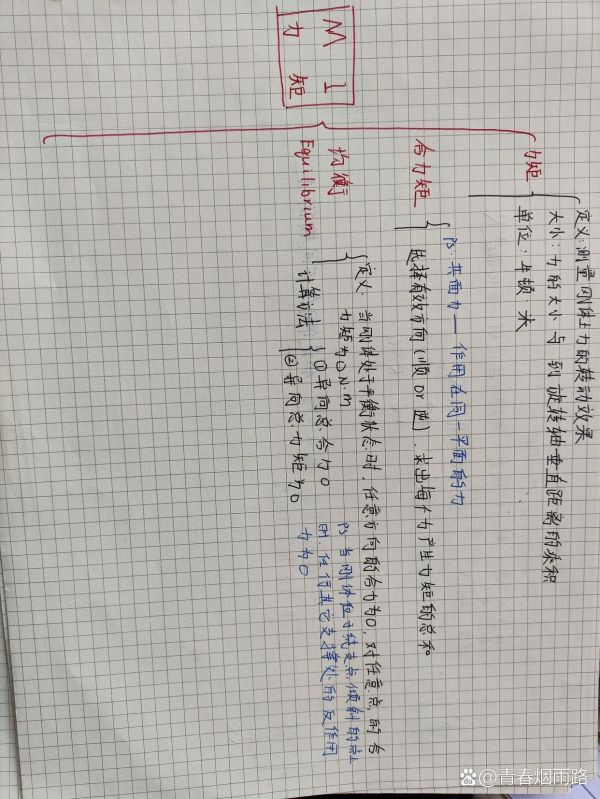 M 1
力 矩
力矩
定义:测量刚体上力的转动效果
大小:力的大小与 到旋转轴垂直距离的乘积
单位:牛顿 米
合力矩
PS:共面力——作用在同一平面的力
选择有效方向(顺or逆),求出每个力产生力矩的总和
均衡
Equilibrium
定义:当刚体处于平衡状态时,任意方向的合力为0,对任意点的合
力矩为0 N·m
计算方法
①异向总:合力0
②异向总:力矩为0
PS:当刚体位于绕支点倾斜的点上
时,任何其它支撑处的反作用
力为0
@青春烟雨路